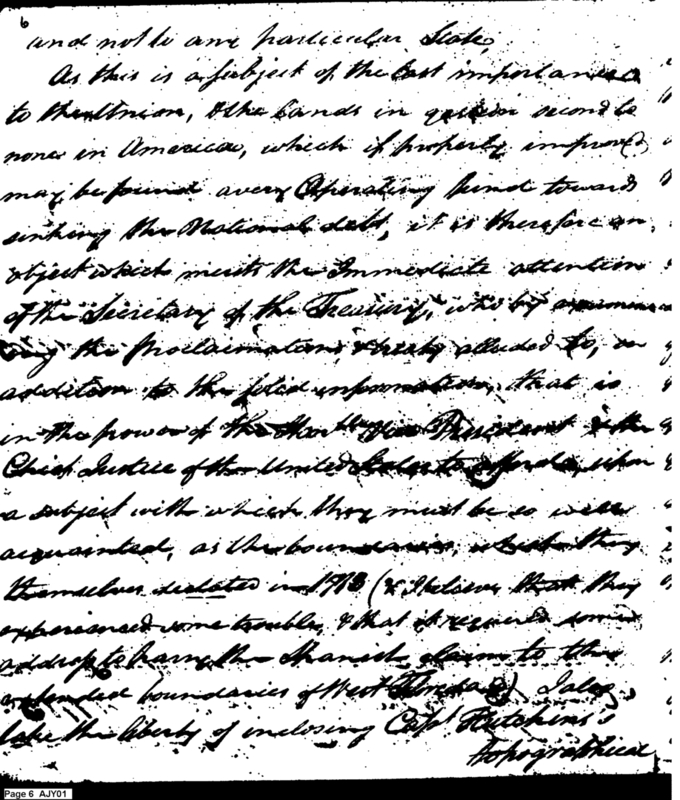 6
and not to any particular State,
As this is a subject of the last importance
to the Union, & the Lands in question second to
none in America, which if property improved
may be found a very Operating fund toward
sinking the National debt, it is therefore an
object which merits the Immediate attention
of the Secretary of the Treasury, who by
the Proclamation, & treaty alluded to, in
addition to the information, that is
in the power of the Hon'ble Vice President & the
Chief Justice of the United States to afford, upon
a subject with which they must be so well
acquainted, as the boundaries, which they
themselves dictated in (& I believe that they
experienced some trouble, & that it required some
address to the Spanish claim to the
extended boundaries of West Florida) I also
take the liberty of inclosing Capt Hutchins's
topographical
Page 6 AJY01